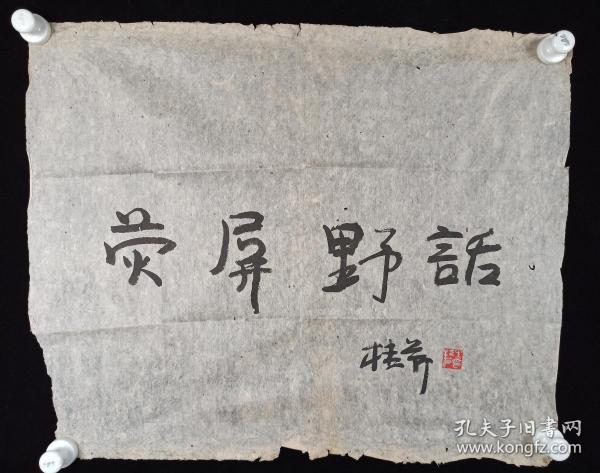 荧屏野話
桂芥
孔夫子旧書网
www.kongfz.com